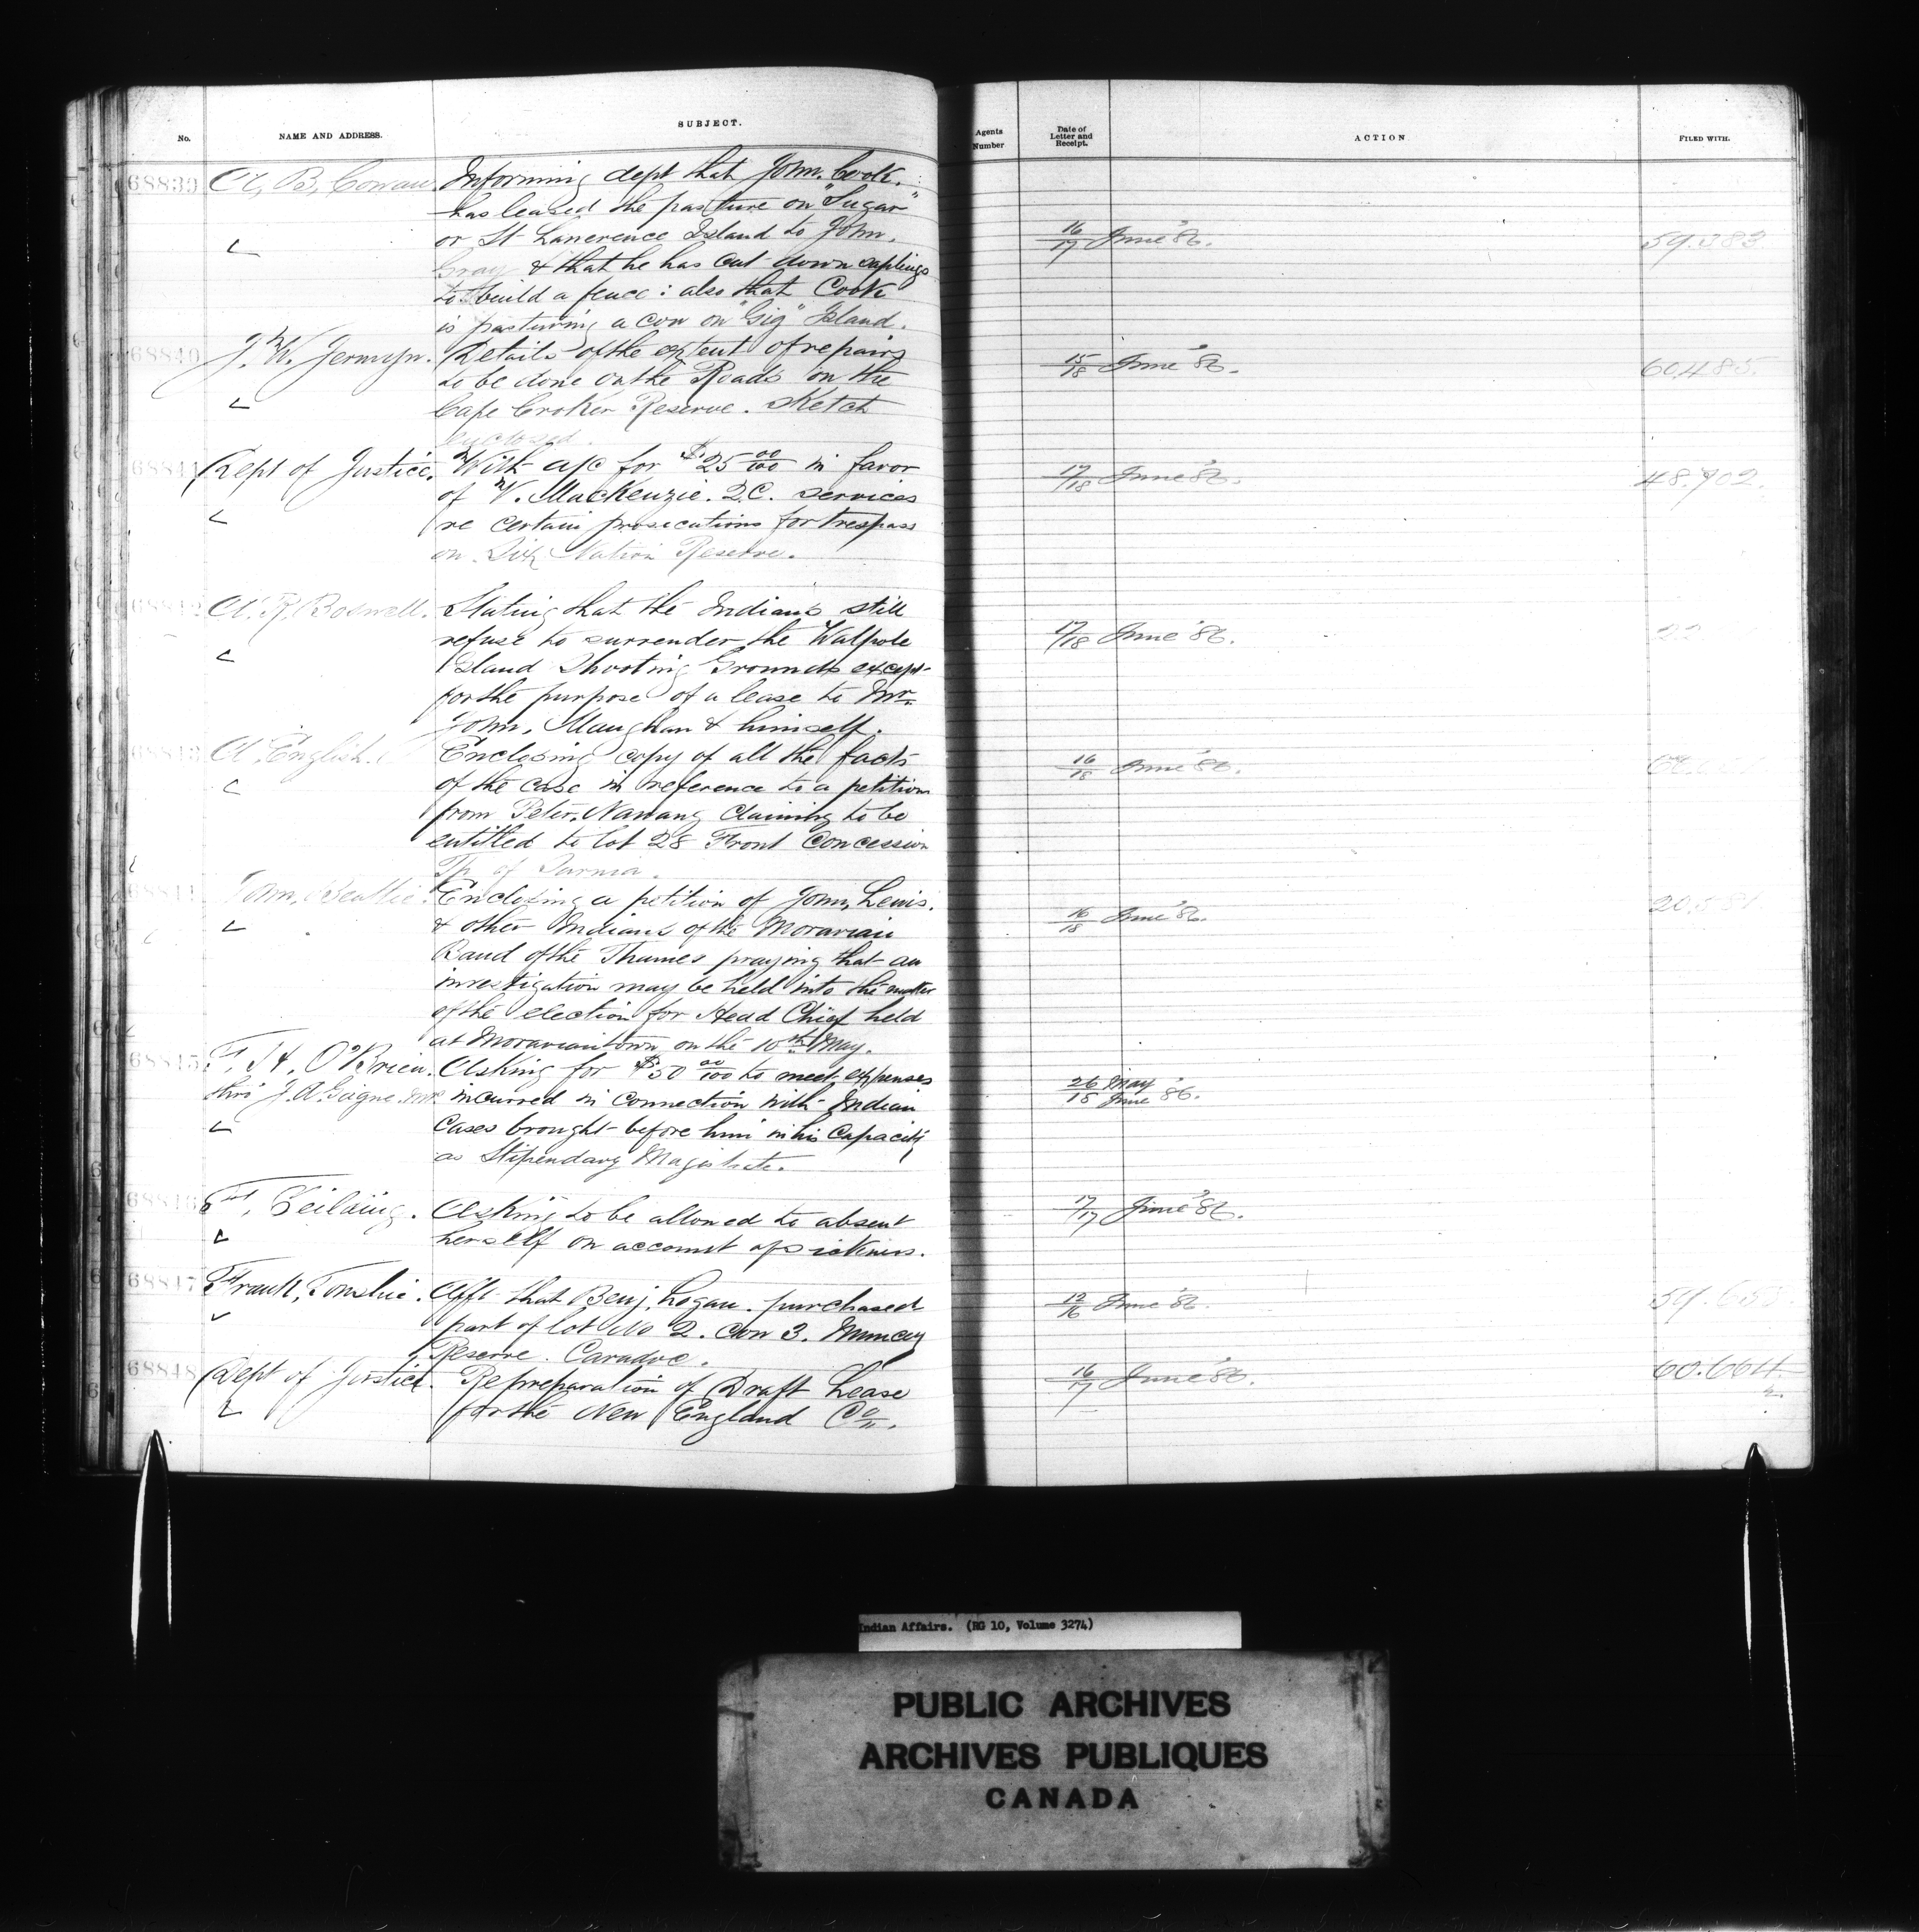 No.
NAME AND ADDRESS.
SUBJECT.
Agents
Number
Date of
Letter and
Receipt.
ACTION
FILED WITH.
68839 A, B, Cowan. Informing dept that John, Cook. 
has leased the pasture on "Sugar"
or St Lawrence Island to John. 16/17 June '86. 59.383
Gray & that he has cut down saplings
to build a fence: also that Cook
is pasturing a cow on "Gig" Island.
68840 J. W. Jermyn. Details of the extent of repairs 15/18 June '86. 60.485.
to be done on the Roads on the
Cape Croker Reserve. Sketch
enclosed.
68841 Dept of Justice. With a/c for $25 00/100 in favor 17/18 June '86. 48.902.
of W. MacKenzie. Q.C. services
re certain prosecutions for trespass
on Six Nation Reserve.
68842 A. R. Boswell. Stating that the Indians still
refuse to surrender the Walpole 17/18 June '86. 22
Island Shooting Grounds except
for the purpose of a lease to Mr.
John, Maughan & himself.
68843 A English. Enclosing copy of all the facts 16/18 June '86.
of the case in reference to a petition
from Peter, Nawang claiming to be
entitled to lot 28 Front Concession
Tp of Sarnia.
68844 John, Beattie. Enclosing a petition of John, Lewis. 16/18 June '86. 20.581
& other Indians of the Moravian
Band of the Thames praying that an
investigation may be held into the matter
of the election for Head Chief held
at Moraviantown on the 10th May.
68845 F. H. O'Brien. Asking for $50 00/100 to meet expenses 26 May
thro' J. A. Gagne. M.P. incurred in connection with Indian 18 June '86.
Cases brought before him in his capacity
as Stipendary Magistrate.
68846 Feilding. Asking to be allowed to absent 17/17 June '86.
herself on account of sickness.
68847 Frank, Tomshie. Afft that Benj, Logan. purchased 12/16 June '86. 59.653
part of lot No 2. Con 3. Muncey
Reserve. Caradoc.
68848 Dept of Justice. Re preparation of Draft Lease 16/17 June '86. 60.664
for the New England Co. 2.
Indian Affairs. (RG 10, Volume 3274)
PUBLIC ARCHIVES
ARCHIVES PUBLIQUES
CANADA